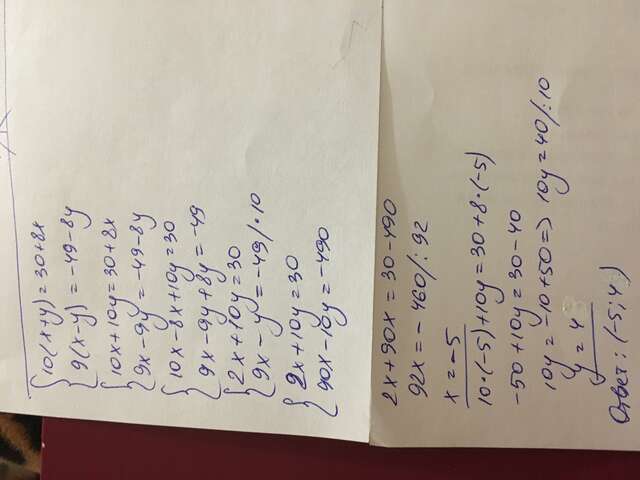 {10(x+y)=30+8x
{9(x-y)=-49-8y
{10x+10y=30+8x
{9x-9y=-49-8y
{10x-8x+10y=30
{9x-9y+8y=-49
{2x+10y=30
{9x-y=-49/·10
{2x+10y=30
{90x-10y=-490
2x+90x=30-490
92x=-460/:92
x=-5
10·(-5)+10y=30+8·(-5)
-50+10y=30-40
10y=-10+50=> 10y=40/:10
y=4
Ответ: (-5;4)